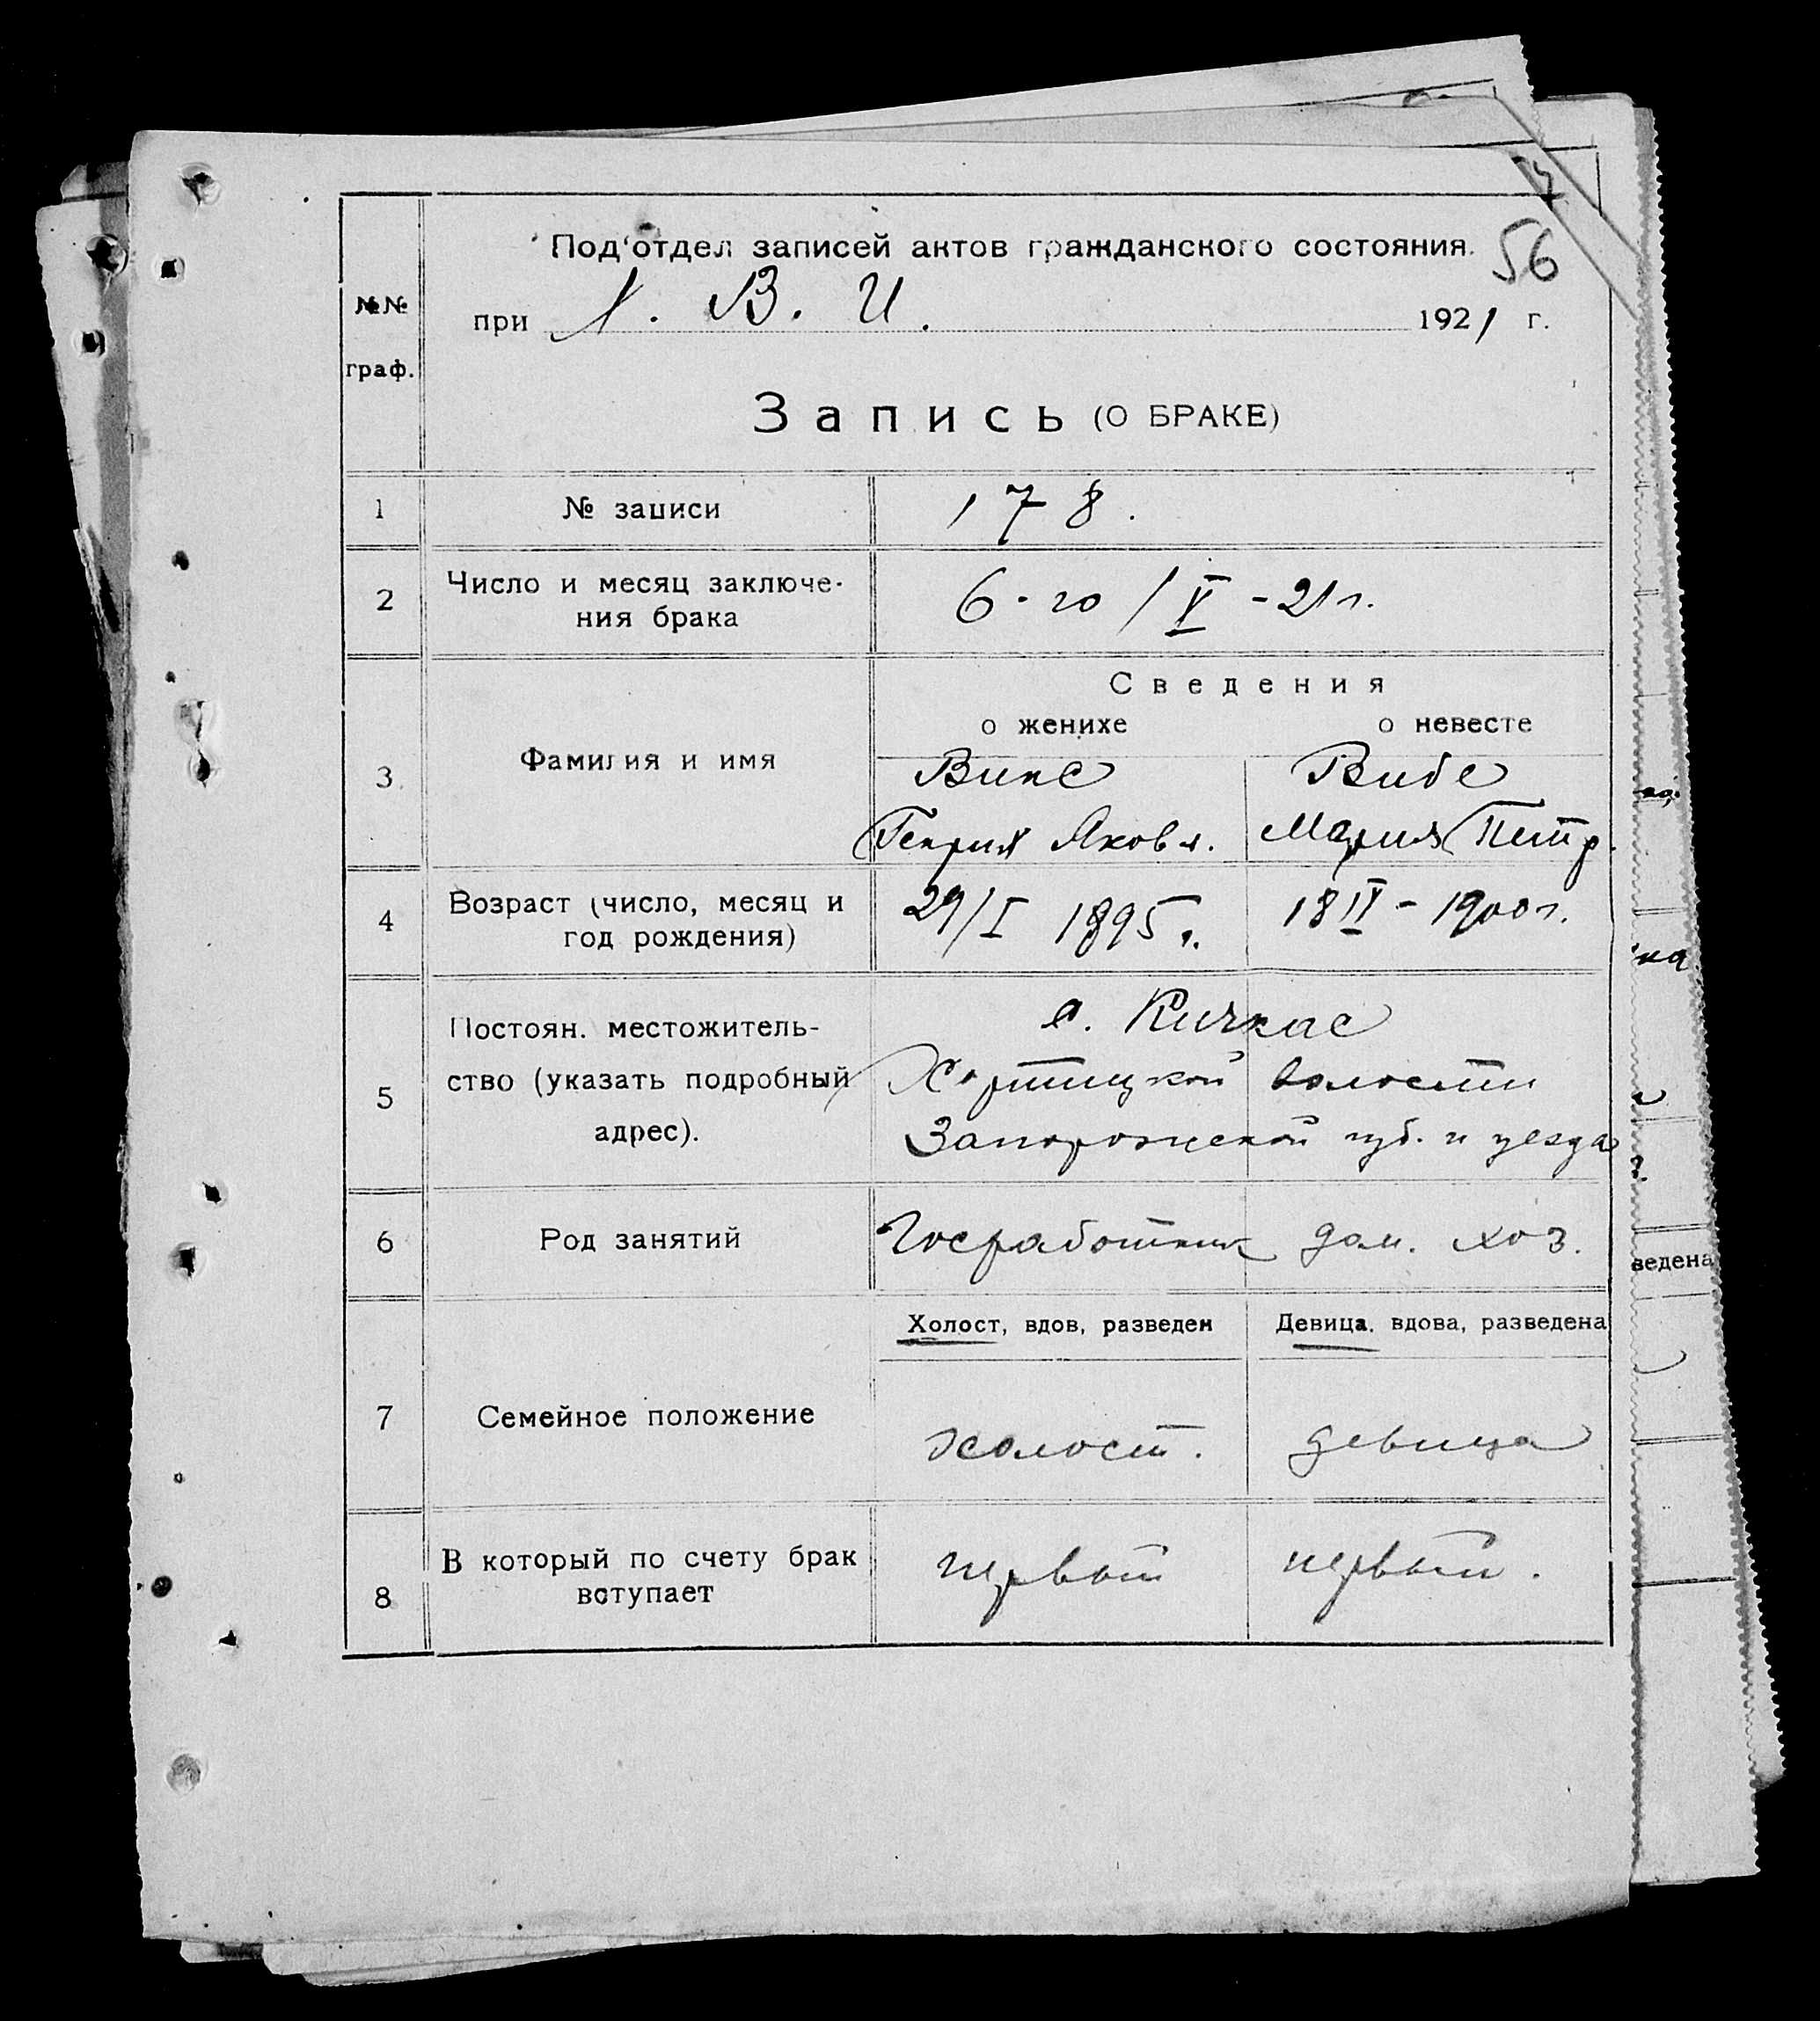 56
№№ граф.
Подотдел записей актов гражданского состояния.
при Х. В. И. 1921 г.
Запись (О БРАКЕ)
1 № записи 178.
2 Число и месяц заключе-
ния брака 6-го/V-21 г.
Сведения
о женихе о невесте
3 Фамилия и имя Винс Вибе
Генрих Яковл. Мария Петр.
4 Возраст (число, месяц и
год рождения) 29/I 1895 г. 18 II - 1900 г.
с. Кичкас
5 Постоян. местожитель-
ство (указать подробный
адрес). Хортицкой волости
Запорожской губ. и уезда
6 Род занятий Госработник дом. хоз.
Холост, вдов, разведен Девица, вдова, разведена
7 Семейное положение холост. девица
8 В который по счету брак
вступает первый первый.
ведена